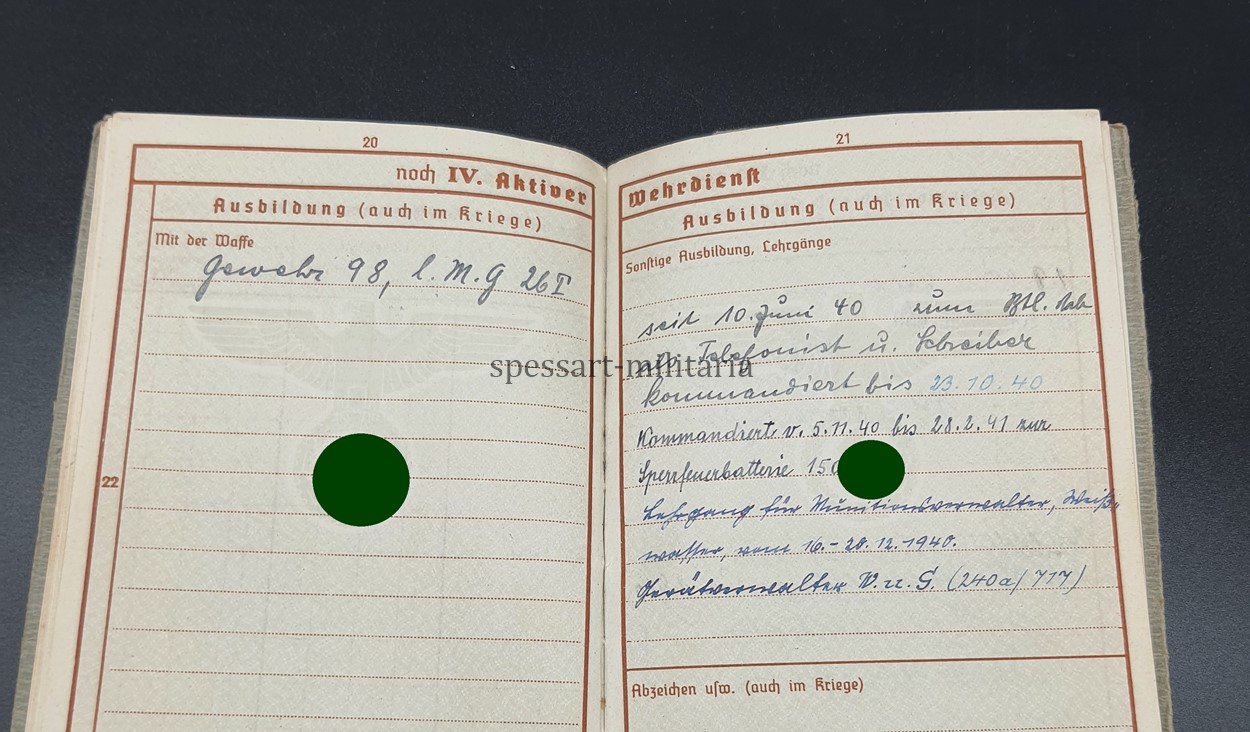 20
noch IV. Aktiver
Ausbildung (auch im Kriege)
Mit der Waffe
Gewehr 98, l. M. G 26 T
22
21
Wehrdienst
Ausbildung (auch im Kriege)
Sonstige Ausbildung, Lehrgänge
seit 10. Juni 40 zum Btl. Stab
als Telefonist u. Schreiber
kommandiert bis 23.10.40
Kommandiert v. 5.11.40 bis 28.2.41 zur
Sperrfeuerbatterie 150
Lehrgang für Munitionsverwalter, Weiß-
wasser, vom 16.-20.12.1940.
Gerätverwalter W. u. G. (240a/717)
Abzeichen usw. (auch im Kriege)
spessart-militaria